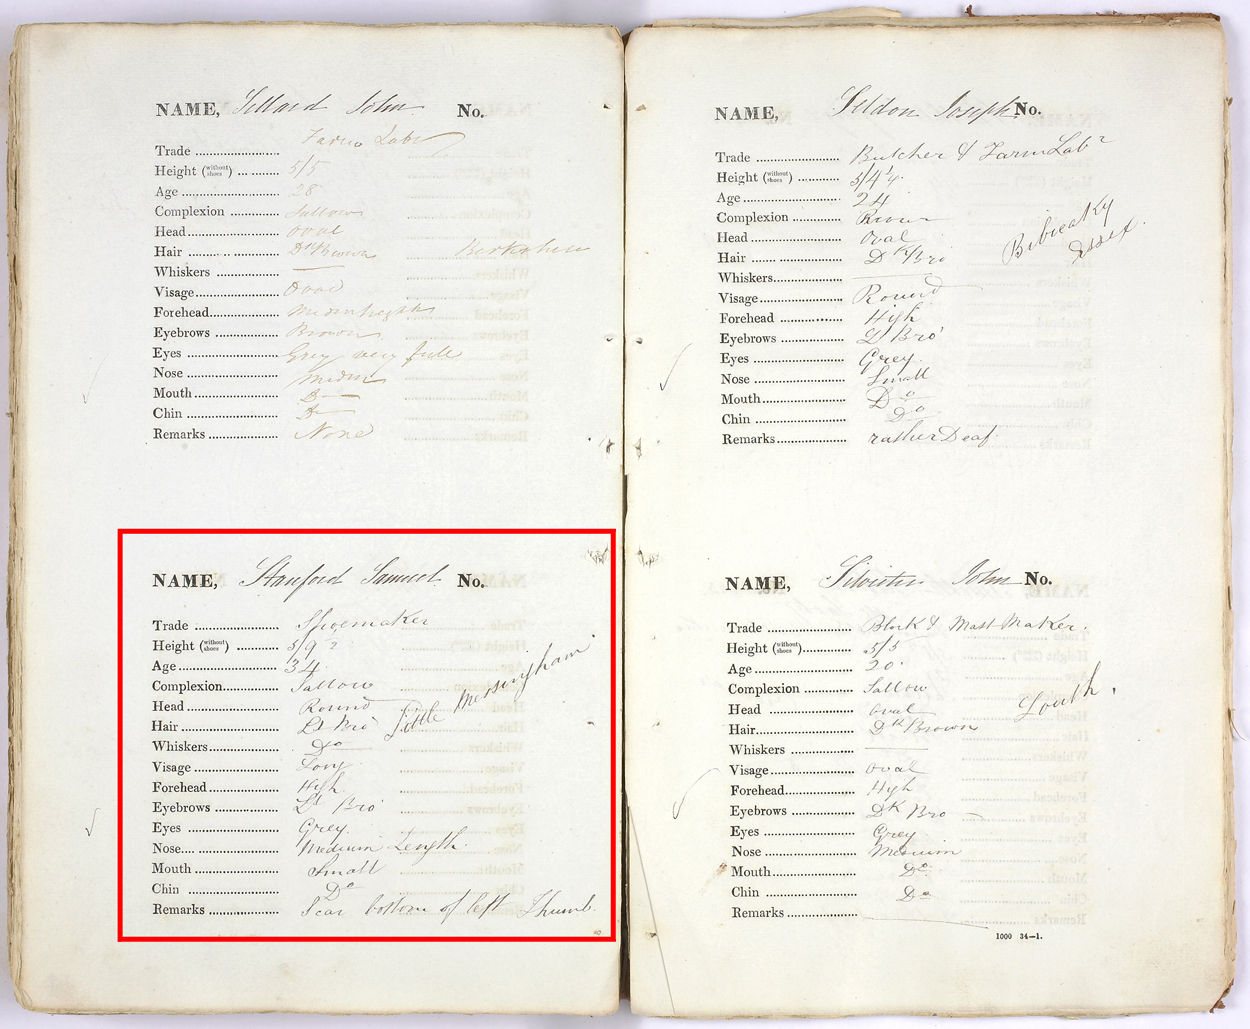 NAME, Sellard John No.
Trade Farm Labr
Height (without shoes) 5/5
Age 28
Complexion Sallow
Head Oval
Hair Dk Brown Berkshire
Whiskers —
Visage Oval
Forehead Medm height
Eyebrows Brown
Eyes Grey very full
Nose Medm
Mouth Do
Chin Do
Remarks None
NAME, Stanford Samuel No.
Trade Shoemaker
Height (without shoes) 5/9 2
Age 34
Complexion Sallow
Head Round
Hair Lt Bro Little Messingham
Whiskers Do
Visage Long
Forehead High
Eyebrows Lt Bro
Eyes Grey
Nose Medium Length
Mouth Small
Chin Do
Remarks Scar bottom of left Thumb.
NAME, Seldon Joseph No.
Trade Butcher & Farm Labr
Height (without shoes) 5/4¼
Age 24
Complexion Brown
Head Oval
Hair Dk Bro
Essex
Whiskers
Visage Round
Forehead High
Eyebrows Lt Bro
Eyes Grey
Nose Small
Mouth Do
Chin Do
Remarks rather Deaf
NAME, Silvester John No.
Trade Block & Mast Maker.
Height (without shoes) 5/5
Age 20
Complexion Sallow
Head Oval
Hair Dk Brown
Whiskers
Visage Oval
Forehead High
Eyebrows Dk Bro
Eyes Grey
Nose Medium
Mouth Do
Chin Do
Remarks
1000 34—1.